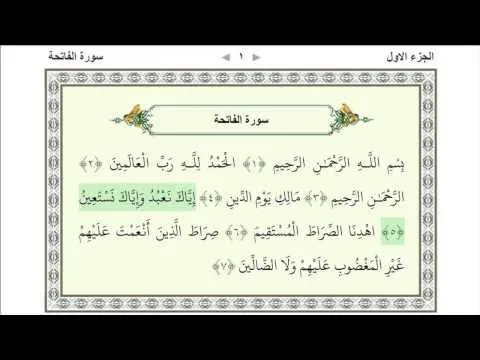 الجزء الاول ١ سورة الفاتحة
سورة الفاتحة
بِسْمِ اللَّهِ الرَّحْمَٰنِ الرَّحِيمِ ﴿١﴾ الْحَمْدُ لِلَّهِ رَبِّ الْعَالَمِينَ ﴿٢﴾
الرَّحْمَٰنِ الرَّحِيمِ ﴿٣﴾ مَالِكِ يَوْمِ الدِّينِ ﴿٤﴾ إِيَّاكَ نَعْبُدُ وَإِيَّاكَ نَسْتَعِينُ
﴿٥﴾ اهْدِنَا الصِّرَاطَ الْمُسْتَقِيمَ ﴿٦﴾ صِرَاطَ الَّذِينَ أَنْعَمْتَ عَلَيْهِمْ
غَيْرِ الْمَغْضُوبِ عَلَيْهِمْ وَلَا الضَّالِّينَ ﴿٧﴾